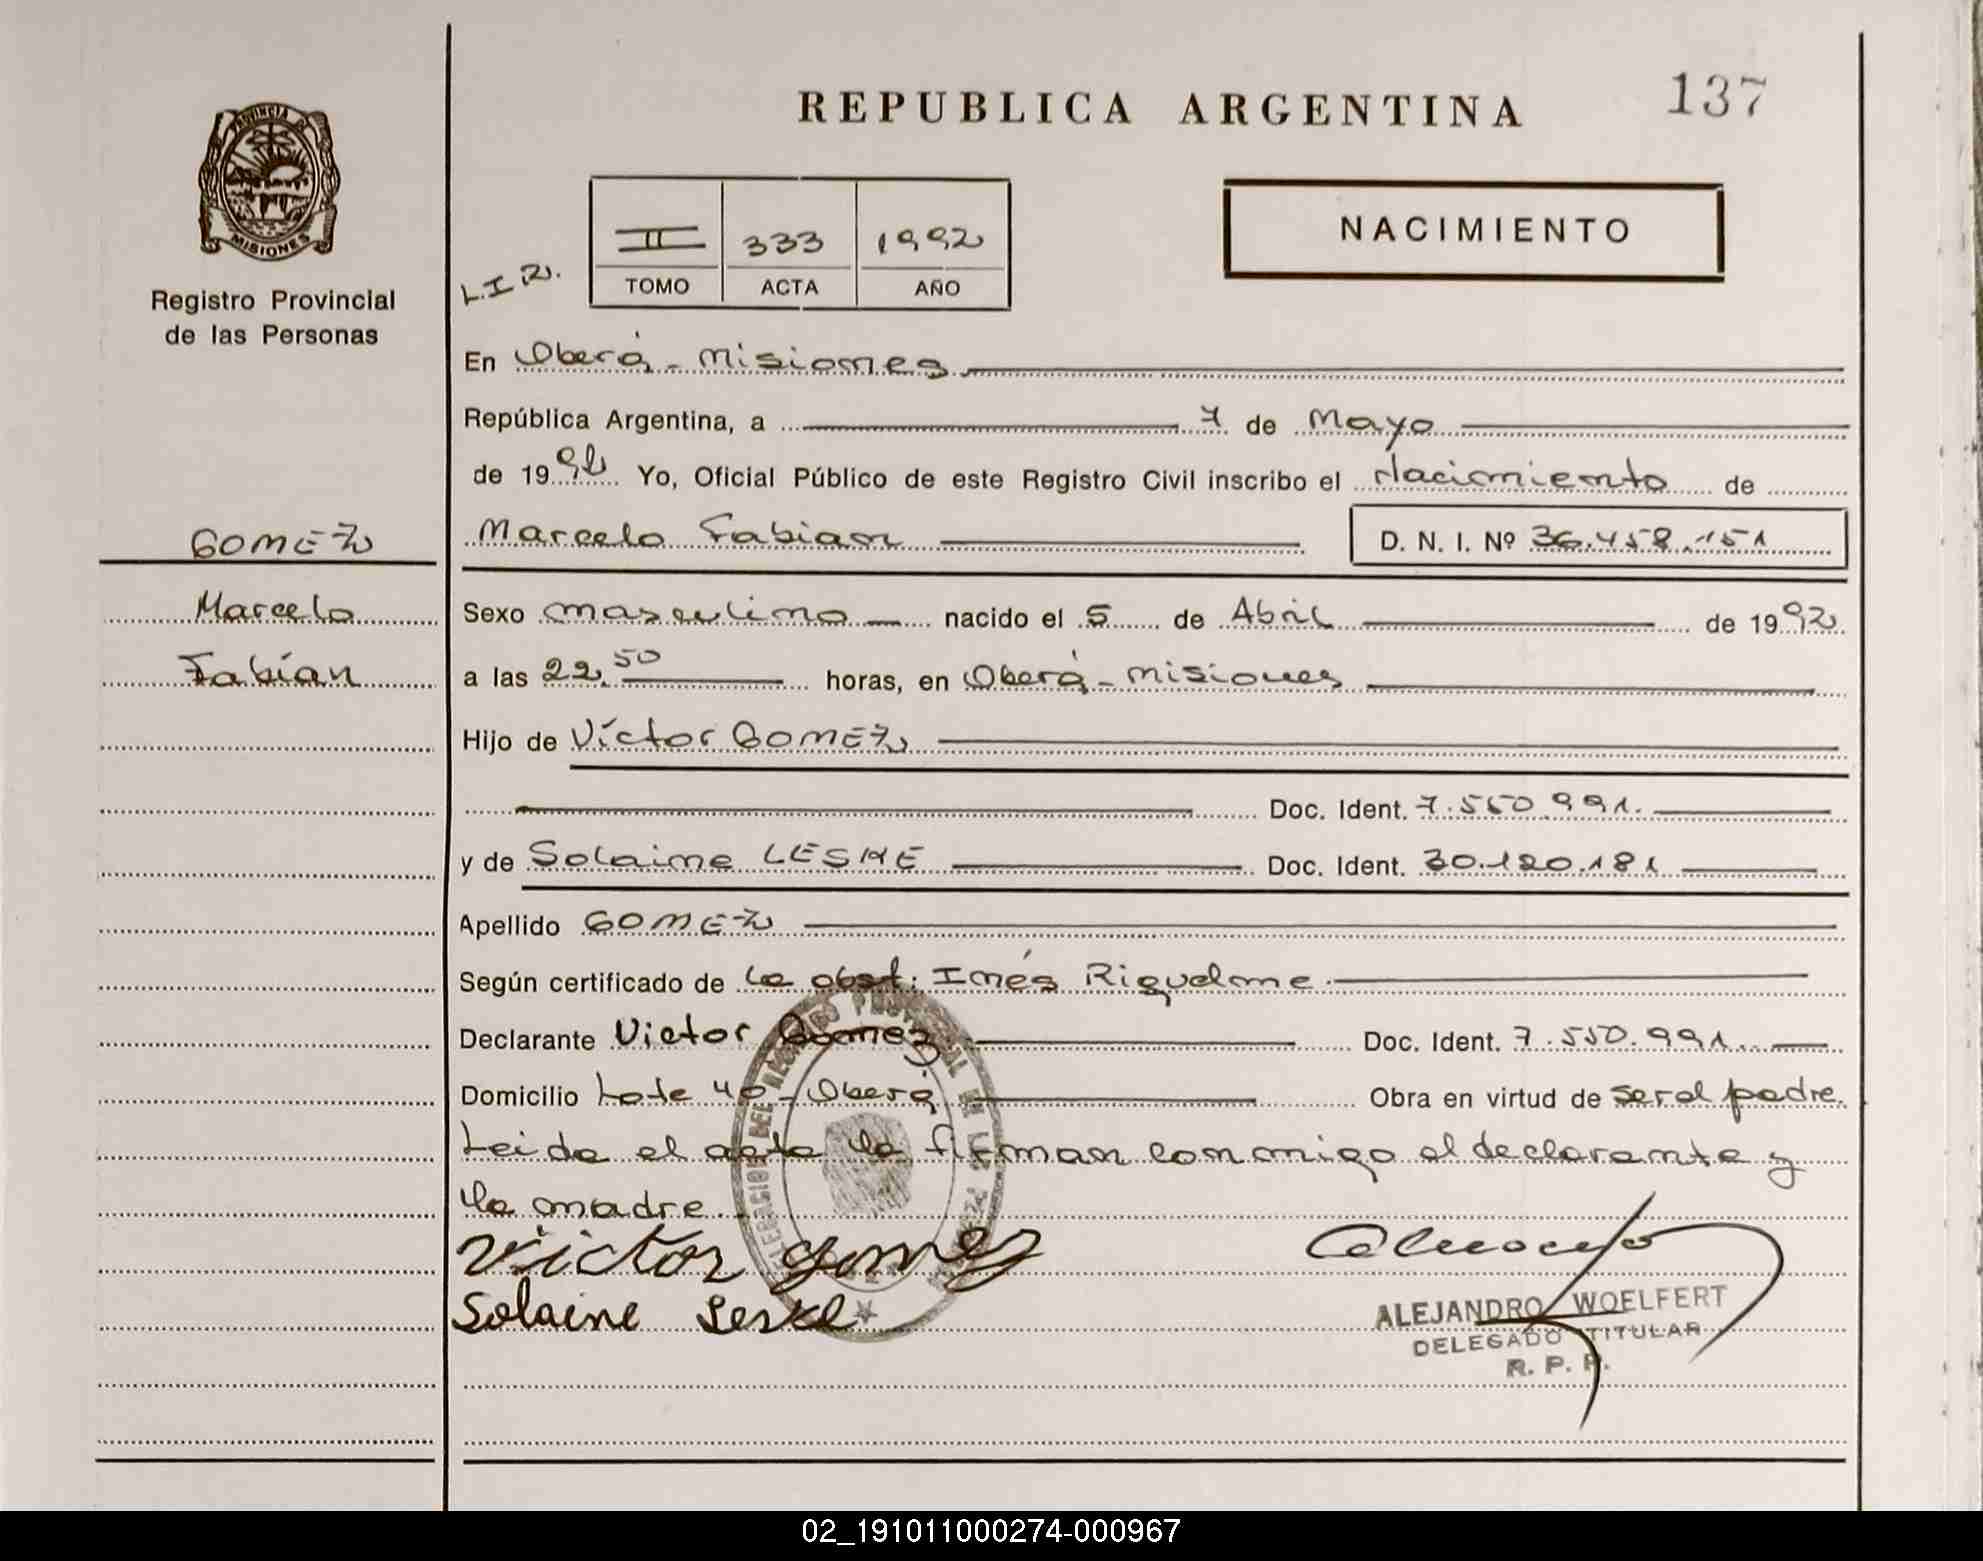 REPUBLICA ARGENTINA
137
PROVINCIA DE
MISIONES
Registro Provincial
de las Personas
NACIMIENTO
II 333 1992
TOMO ACTA AÑO
L.I.R.
En Oberá - Misiones
República Argentina, a 7 de Mayo
de 1992 Yo, Oficial Público de este Registro Civil inscribo el Nacimiento de
GOMEZ
Marcelo Fabian D. N. I. Nº 36.458.151
Marcelo
Sexo masculino nacido el 5 de Abril de 1992
Fabián
a las 22,50 horas, en Oberá - Misiones
Hijo de Víctor GOMEZ
Doc. Ident. 7.550.991.
y de Solaine LESKE Doc. Ident. 30.120.181
Apellido GOMEZ
Según certificado de la obst. Inés Riquelme
Declarante Victor Gomez Doc. Ident. 7.550.991.
Domicilio Lote 40 - Oberá Obra en virtud de ser el padre.
Leida el acta la firman conmigo el declarante y
la madre.
Victor gomez
Solaine Leske
ALEJANDRO WOELFERT
DELEGADO TITULAR
R. P. P.
02_191011000274-000967